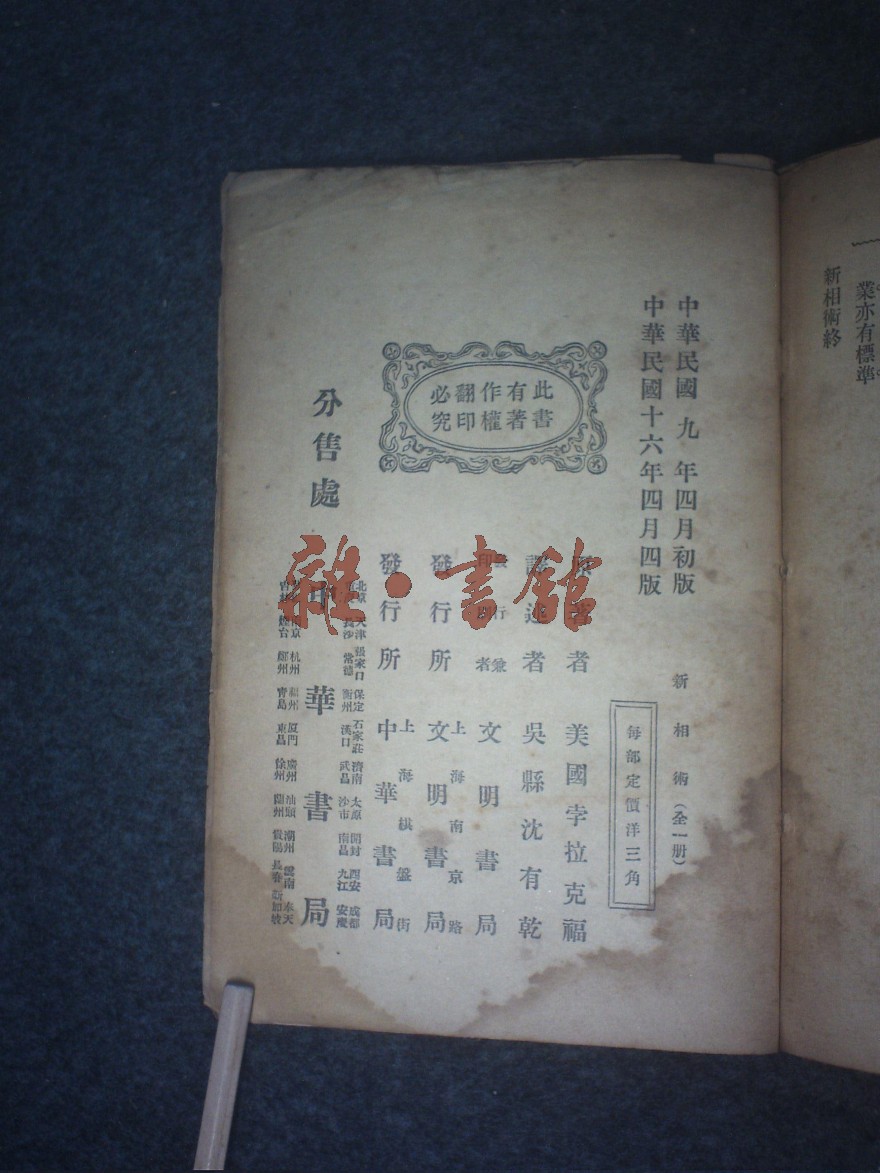 業亦有標準
新相術終
中華民國九年四月初版
中華民國十六年四月四版
新相術(全一册)
每部定價洋三角
此書有著作權翻印必究
原著者 美國孛拉克福
譯述者 吳縣沈有乾
印刷者兼發行 文明書局
發行所 上海南京路 文明書局
發行所 上海棋盤街 中華書局
分售處 中華書局
北京 天津 張家口 保定 石家莊 濟南 太原 開封 西安 成都
長沙 常德 衡州 漢口 武昌 沙市 南昌 九江 安慶
南京 杭州 福州 厦門 廣州 汕頭 潮州 雲南 奉天
煙台 鄭州 青島 東昌 徐州 蘭州 貴陽 長春 新加坡
雜·書館